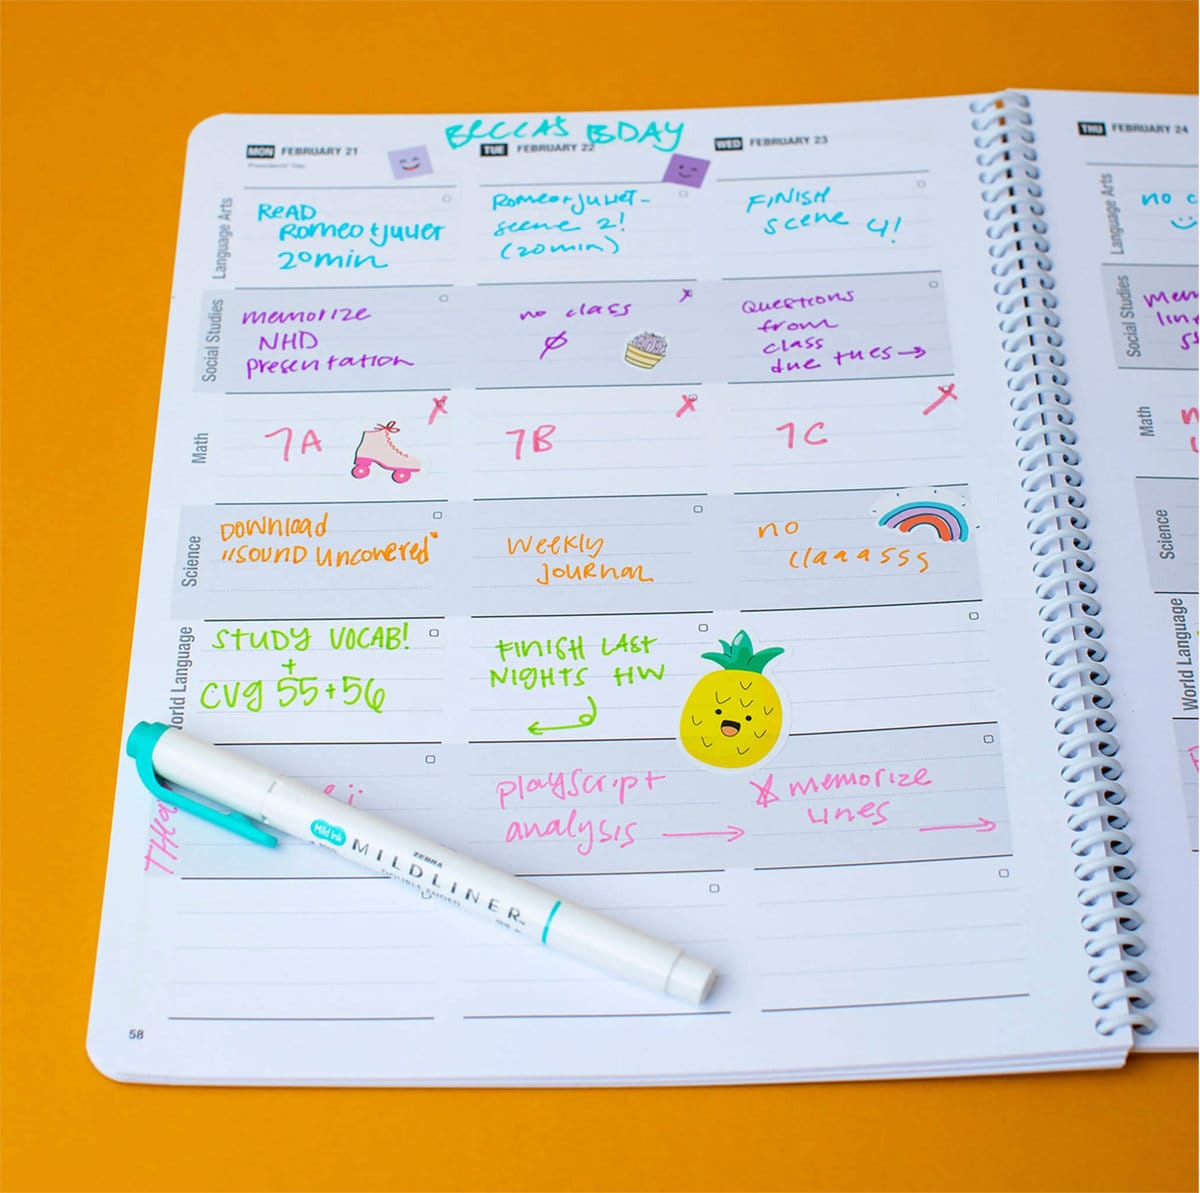 BECCA'S BDAY
MON FEBRUARY 21
Presidents' Day
TUE FEBRUARY 22
WED FEBRUARY 23
THU FEBRUARY 24
Language Arts
READ
Romeo + Juliet
20 min
Romeo + Juliet -
scene 2!
(20 min)
FINISH
scene 4!
Language Arts
no
Social Studies
memorize
NHD
presentation
no class
Questions
from
class
due tues →
Social Studies
Math
7A
7B
7C
Math
Science
DOWNLOAD
"SOUND Uncovered"
Weekly
JOURNAL
no
claaasss
Science
World Language
STUDY VOCAB!
+
CVG 55+56
FINISH LAST
NIGHTS HW
World Language
playscript
analysis →
memorize
lines →
Mild Ink
ZEBRA
MILDLINER™
DOUBLE ENDED
58